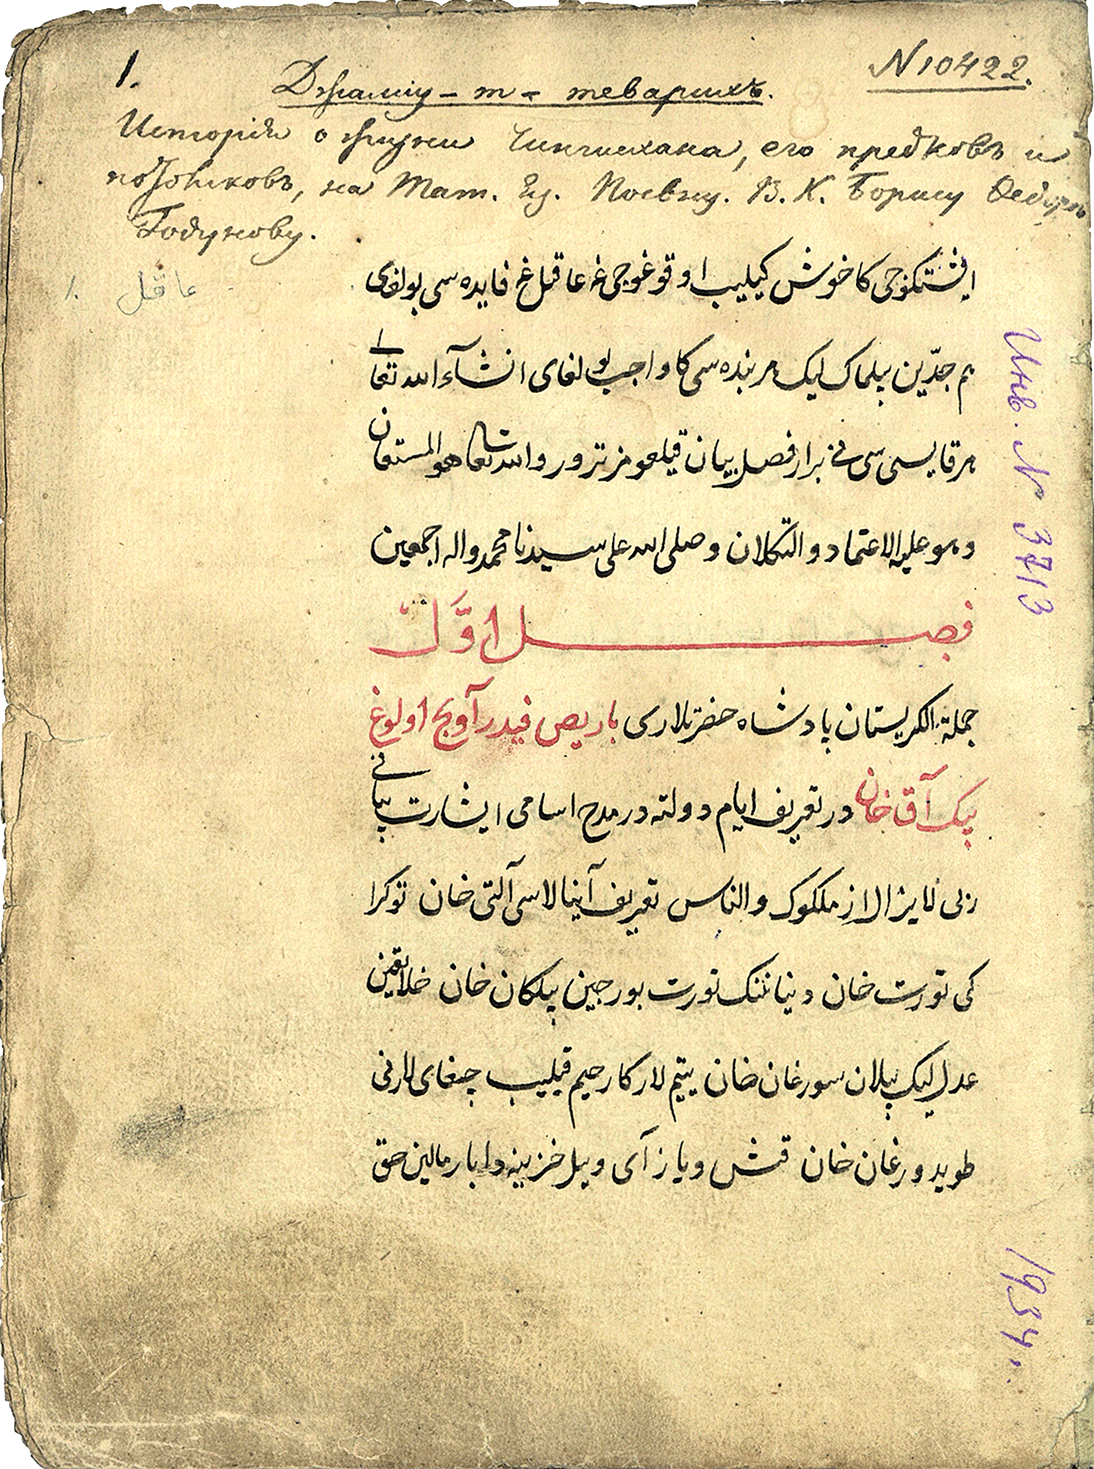 1.
N 10422.
Джамiу-т-теварихъ.
Исторiя о жизни Чингисхана, его предковъ и
потомковъ, на Тат. яз. Посвящ. В. К. Борису Федор.
Годунову.
1. عاقل
ایشتکوجی کا خوش کیلیب اوقوغوجی غه عاقل غه فایده سی بولغای
هم جدّین بیلماک لیک هر بنده سی کا واجب بولغای انشآء الله تعالی
هر قایسی سی نی برار فصل بیان قیلغومز ترور والله تعالی هو المستعان
وهو علیه الاعتماد والتکلان وصلی الله علی سیدنا محمد واله اجمعین
فصل اوّل
جملة الکریستان پادشاه حضرتلاری باریص فیدر آویج اولوغ
بیک آق خان در تعریف ایام دولته در مدح اسامی ایشارت بیانی
ربی لایزال از ملکوک والناس تعریف آینالاسی آلتی خان توکرا
کی تورت خان دنیاننک تورت بورجین بیلکان خان خلایقنی
عدل لیک بیلان سورغان خان یتیم لارکا رحیم قیلیب جیغای لارنی
طویدورغان خان قش ویاز آی وییل خزینه دا بار مالین حق
Инв. N 3713
1934 г.